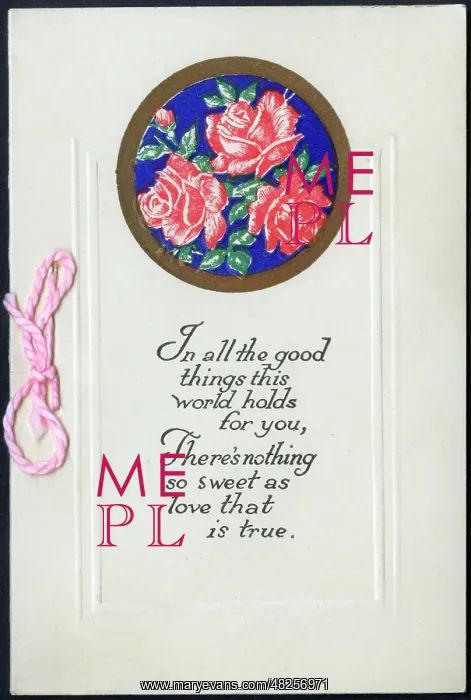 ME
PL
In all the good
things this
world holds
for you,
There's nothing
so sweet as
love that
is true.
ME
PL
www.maryevans.com/48256971